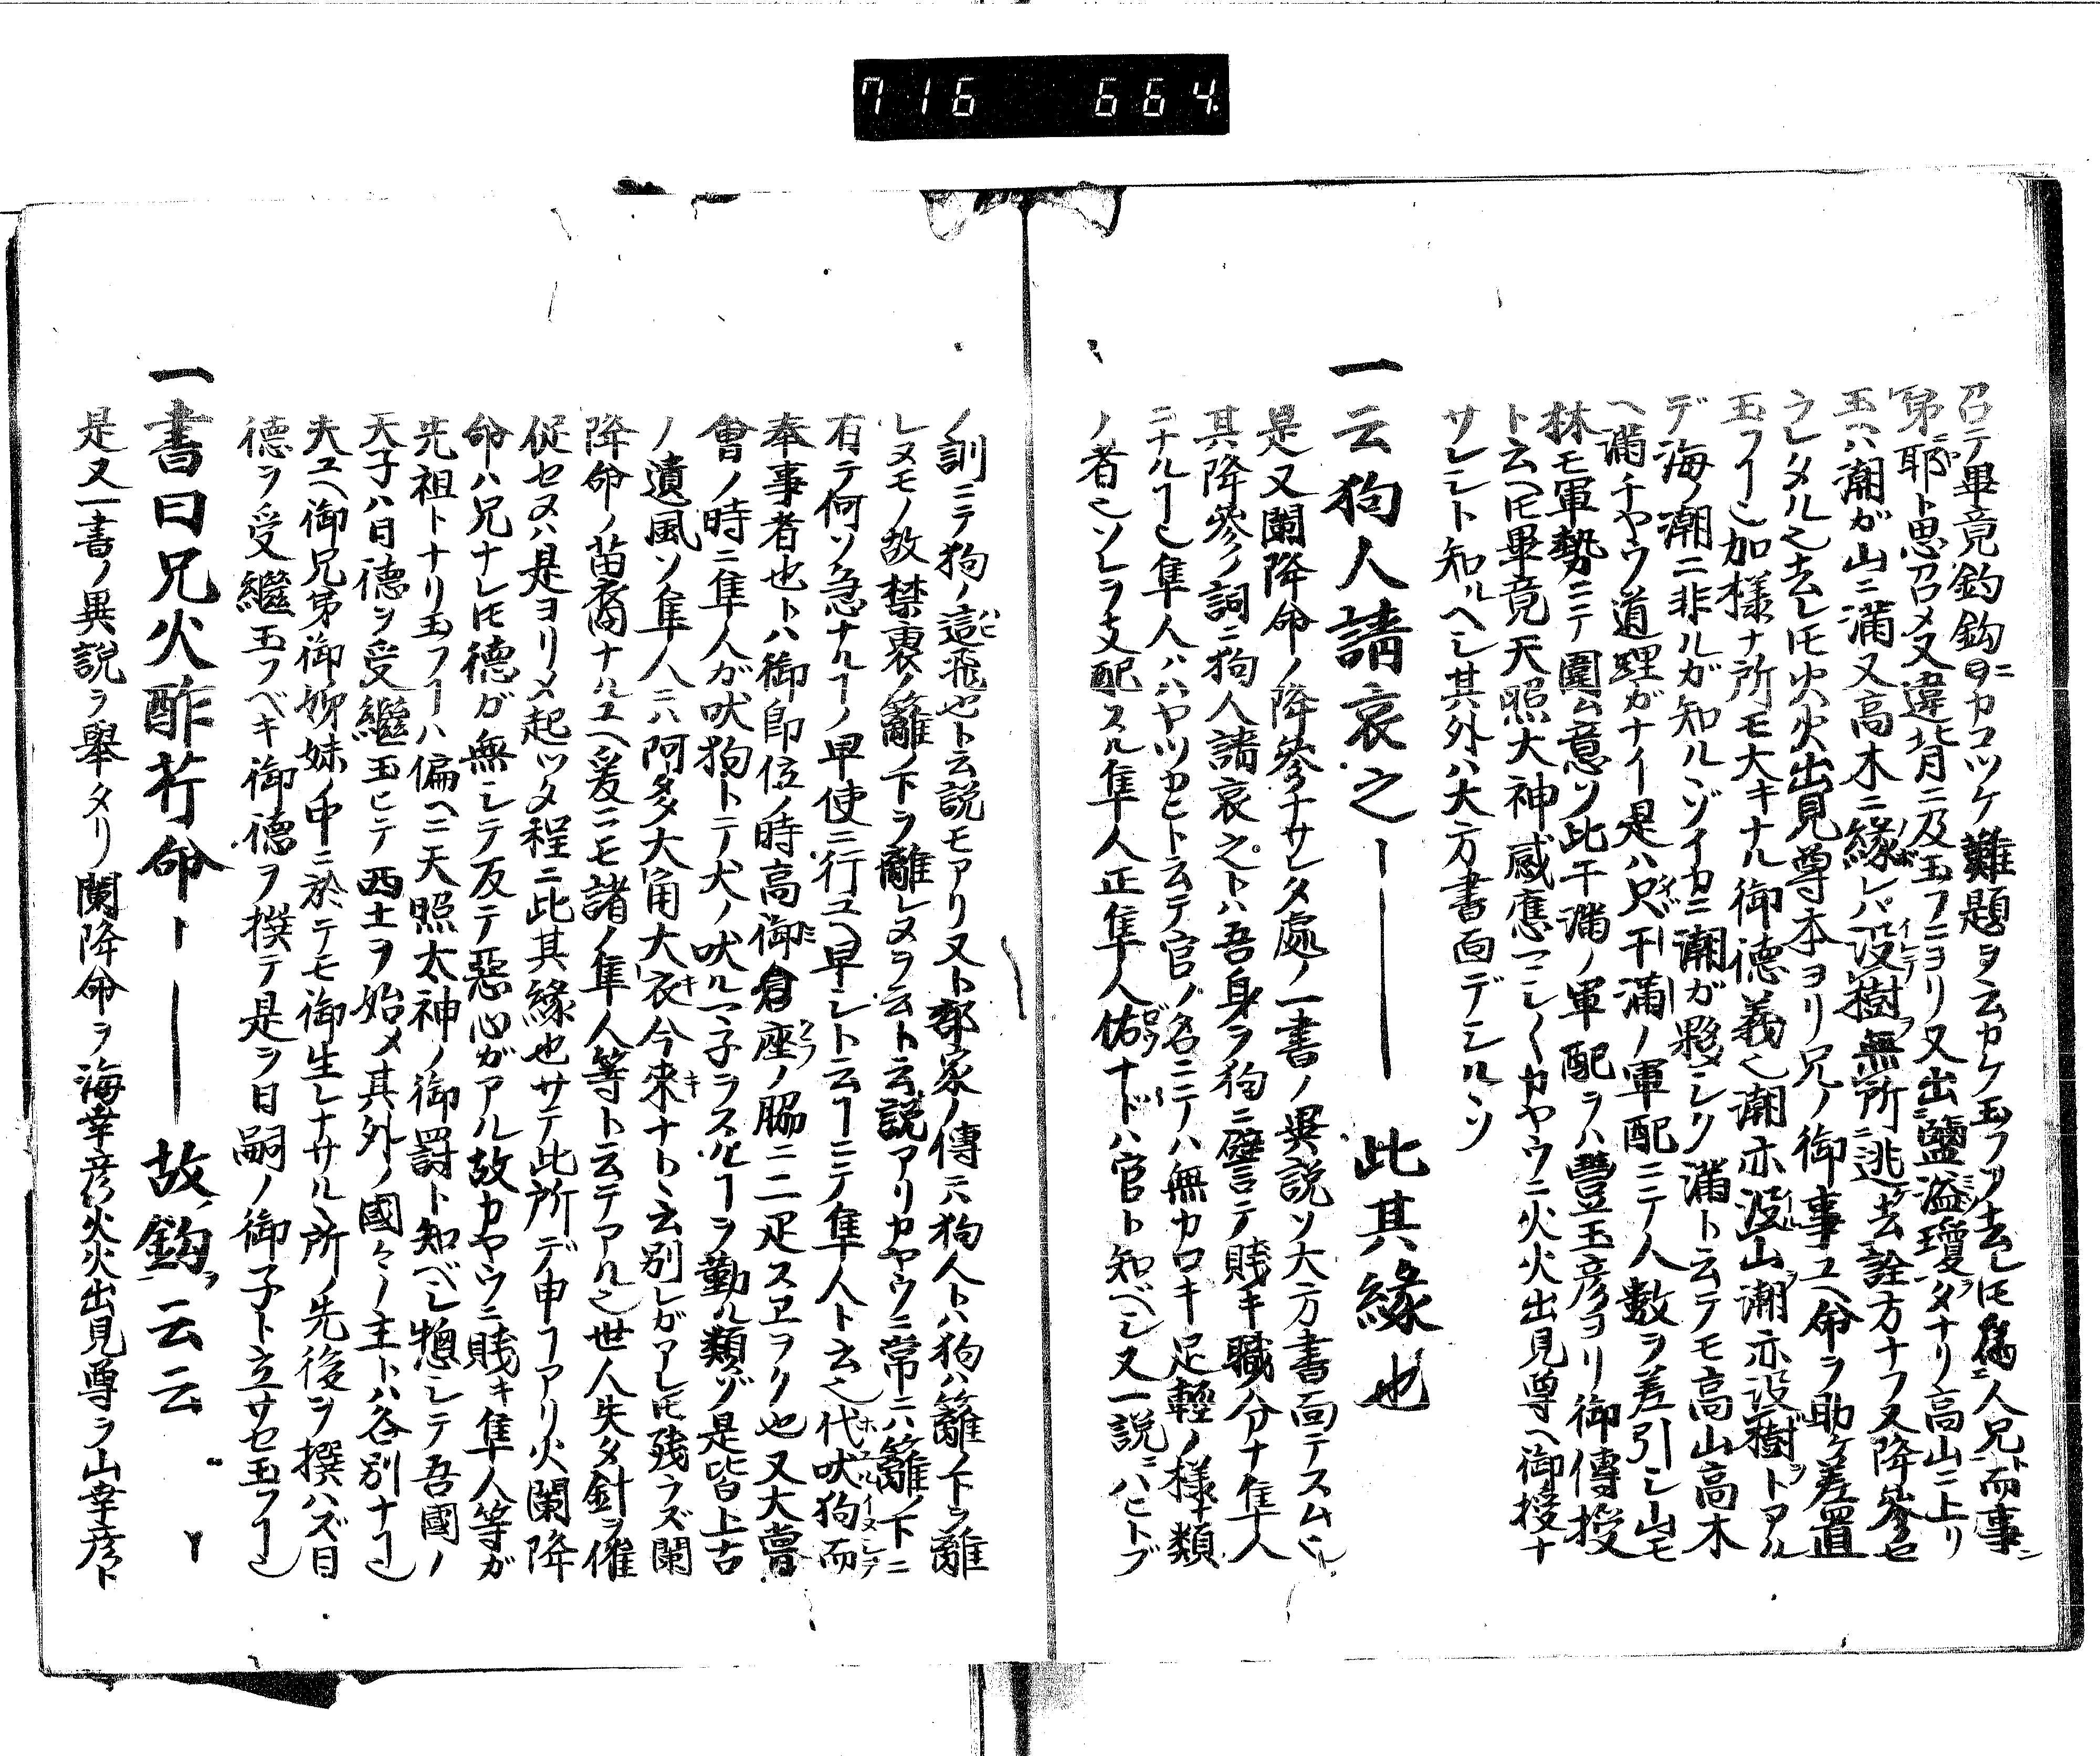 716 664
召テ畢竟釣鈎ニカコツケ難題ヲ云カケ玉フヿ去レ𪜈為人兄而事
弟耶ト思召メ又違背ニ及玉フニヨリ又出鹽溢瓊タナリ高山ニ上リ
玉ヘハ潮ガ山ニ満又高木ニ縁レバ没樹無所逃去詮方ナフ又降參セ
ラレタル也去レ𪜈火火出見尊本ヨリ兄ノ御事ユヘ命ヲ助ケ差置
玉フヿ也加様ナ所モ大キナル御徳義也潮亦没山潮亦没樹トアル
デ海ノ潮ニ非ルガ知ルヽゾイカニ潮ガ夥シク満ト云テモ高山高木
ヘ満チヤウ道理ガナイ是ハ只干満ノ軍配ニテ人数ヲ差引シ山モ
林モ軍勢ニテ圍ム意ソ此干満ノ軍配ヲハ豐玉彦ヨリ御傳授
ト云ヘ𪜈畢竟天照大神感應マシ〱カヤウニ火火出見尊ヘ御授ナ
サレシト知ルヘシ其外ハ大方書面デシルソ
一云狗人請哀之――此其縁也
是又闌降命ノ降參ナサレタ處ノ一書ノ異説ソ大方書面テスム也
其降參ノ詞ニ狗人請哀之トハ吾身ヲ狗ニ譬テ賎キ職分ナ隼人
ニナルヿ也隼人ハハヤツカヒト云テ官ノ名ニテハ無カロキ足輕ノ様ナ類
ノ者也ソレヲ支配スル隼人正隼人佑ナドハ官ト知ベシ又一説ニハヒトブ
ノ訓ニテ狗ノ這飛也ト云説モアリ又ト部家ノ傳ニ狗人トハ狗ハ籬ノ下ヲ離
レヌモノ故禁裏ノ籬ノ下ヲ離レヌヲ云ト云説アリカヤウニ常ニ籬ノ下ニ
有テ何ソ急ナルヿノ早使ニ行ユヘ早シト云ヿニテ隼人ト云也代吠狗而
奉事者也トハ御即位ノ時高御倉座ノ脇ニ二疋スヱヲク也又大嘗
會ノ時ニ隼人が吠狗トテ犬ノ吠ルマ子ヲスルヿヲ勤ル類ゾ是皆上古
ノ遺風ソ隼人ニハ阿多大角大衣今来ナトヽ云別レガアレ𪜈残ラズ闌
降命ノ苗裔ナルユヘ爰ニモ諸ノ隼人等ト云テアル也世人失タ針ヲ催
促セヌハ是ヨリメ起ツタ程ニ此其縁也サテ此所デ申ヿアリ火闌降
命ハ兄ナレ𪜈徳ガ無シテ反テ惡心ガアル故カヤウニ賎キ隼人等ガ
先祖トナリ玉フヿハ偏ヘニ天照太神ノ御罰ト知ベシ惣シテ吾國ノ
天子ハ日徳ヲ受繼玉ヒテ西土ヲ始メ其外ノ國々ノ主トハ各別ナヿ也
夫ユヘ御兄弟御姉妹ノ中ニ於テモ御生レナサルヽ所ノ先後ヲ撰ハズ日
徳ヲ受繼玉フベキ御徳ヲ撰テ是ヲ日嗣ノ御子ト立サセ玉フヿ也
一書曰兄火酢芹命――故鈎云云
是又一書ノ異説ヲ擧タリ闌降命ヲ海幸彦火火出見尊ヲ山幸彦ト